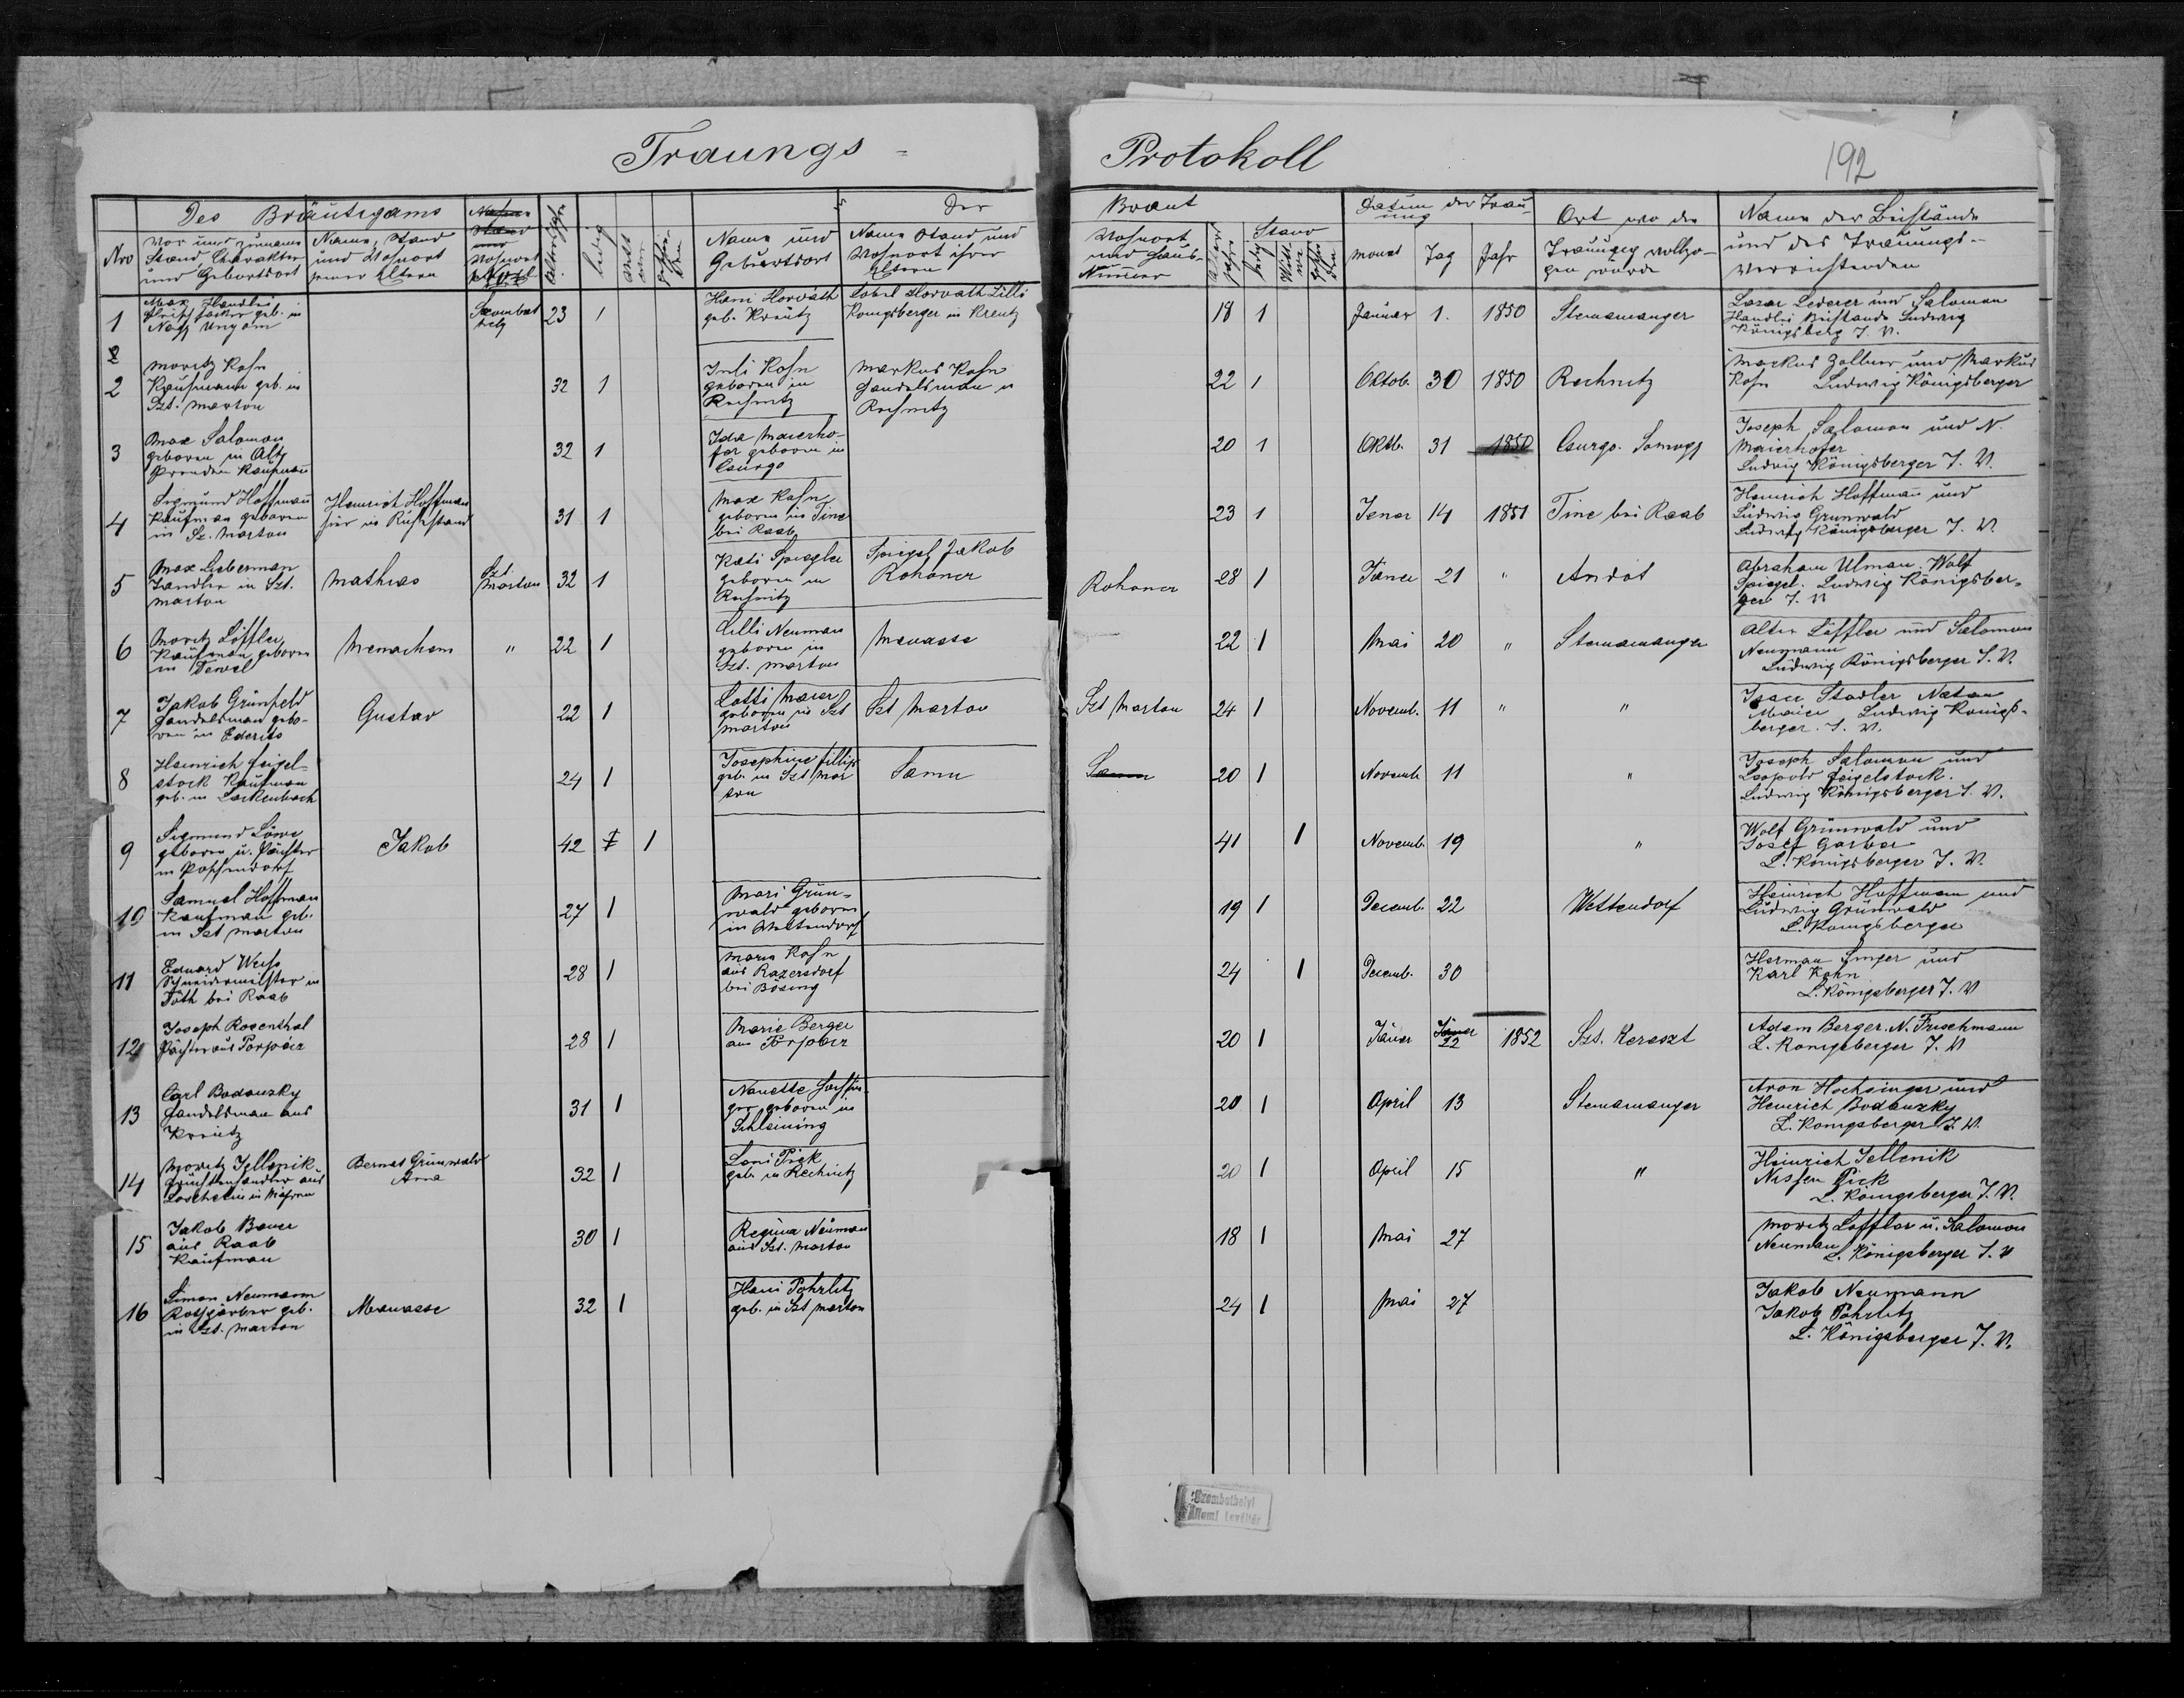 Traungs = Protokoll
192
Des Bräutigams
Der Braut
Datum der Trau-
ung
Ort wo die
Trauung vollzo-
gen wurde
Name der Beistände
und des Trauungs-
verrichtenden
Nro
Vor und Zuname
Stand Charakter
und Geburtsort
Name, Stand
und Wohnort
seiner Eltern
Wohnort
ledig
Name und
Geburtsort
Name Stand und
Wohnort ihrer
Eltern
Wohnort
und Haus-
Nummer
Stand
monat
Tag
Jahr
1
Max Handler
geb. in
Szombat
hely
23
1
Hani Horváth
geb. Kreutz
Horvath Lilli
Königsberger in Kreutz
18
1
Januar
1.
1850
Steinamanger
Lazar Lederer und Salomon
Handler Beistände Ludwig
Königsberg J. V.
2
Moritz Kohn
Kaufmann geb. in
Szt. Marton
32
1
Juli Kohn
geboren in
Rechnitz
Markus Kohn
Handelsman in
Rechnitz
22
1
Oktob.
30
1850
Rechnitz
Markus Zollner und Markus
Kohn Ludwig Königsberger
3
Max Salomon
geboren in
Kaufman
32
1
Ida Maierho-
fer geboren in
Csurgo
20
1
Oktb.
31
1850
Csurgo. Somogy
Joseph Salomon und N.
Maierhofer
Ludwig Königsberger J. V.
4
Sigmund Hoffman
Kaufman geboren
in Sz. Marton
Heinrich Hoffman
hier in Ruhestand
31
1
Max Kohn
geboren in Tine
bei Raab
23
1
Jener
14
1851
Tine bei Raab
Heinrich Hoffman und
Ludwig Grunwald
Ludwig Königsberger J. V.
5
Max Lieberman
Handler in Szt.
Marton
Mathias
Szt.
Marton
32
1
Kati Spiegler
geboren in
Rechnitz
Spiegel Jakob
Rohoncz
Rohoncz
28
1
Jäner
21
"
Andót
Abraham Ulman. Wolf
Spiegel. Ludwig Königsber-
ger J. V
6
Moritz Löffler
Kaufman geboren
in Tewel
Menachem
"
22
1
Lilli Neuman
geboren in
Szt. Marton
Manasse
22
1
Mai
20
"
Steinamanger
Alter Löffler und Salomon
Neumann
Ludwig Königsberger J. V.
7
Jakob Grünfeld
Handelsman gebo-
ren in Ederits
Gustav
22
1
Lotti Maier
geboren in Szt
Marton
Szt Marton
Szt Marton
24
1
Novemb.
11
"
"
Stadler Natan
Maier Ludwig Königs-
berger. J. V.
8
Heinrich Feigel-
stock Kaufman
geb. in Lackenbach
24
1
Josephine Fillip
geb. in Szt Mar
ton
Samu
Samu
20
1
Novemb
11
"
Joseph Salomon und
Leopold Feigelstock.
Ludwig Königsberger J. V.
9
Sigmund Löwe
geboren u. Pächter
in
Jakob
42
1
41
1
Novemb.
19
"
Wolf Grünwald und
Josef Garber
L. Königsberger J. V.
10
Samuel Hoffman
Kaufman geb.
in Szt Marton
27
1
Mari Grün-
wald geboren
in Wettendorf
19
1
Decemb.
22
Wettendorf
Heinrich Hoffman und
Ludwig Grünwald
L. Königsberger
11
Eduard Weiss
Schneidermeister in
Toth bei Raab
28
1
Maria Kohn
aus Razersdorf
bei Bösing
24
1
Decemb.
30
Herman Singer und
Karl Kohn
L. Königsberger J. V
12
Joseph Rosenthal
Pächter aus Porpácz
28
1
Marie Berger
aus Porpácz
20
1
Jäner
Jäner
22
1852
Szt. Kereszt
Adam Berger. N. Frischmann
L. Königsberger J. V
13
Carl Bodanzky
Handelsman aus
Kreutz
31
1
Nanette Hochsin-
ger geboren in
Schlaining
20
1
April
13
Steinamanger
Aron Hochsinger und
Heinrich Bodanzky
L. Königsberger J. V.
14
Moritz Jellenik
Früchtenhandler aus
in Mähren
Bernat Grünwald
32
1
Leni Pick
geb. in Rechnitz
20
1
April
15
"
Heinrich Jellenik
Nissen Pick
L. Königsberger J. V.
15
Jakob Bauer
aus Raab
Kaufman
30
1
Regina Neuman
aus Szt. Marton
18
1
Mai
27
Moritz Löffler u. Salomon
Neuman L. Königsberger J. V
16
Simon Neumann
Rothgärber geb.
in Szt. Marton
Manasse
32
1
Hani Pohrlitz
geb. in Szt Marton
24
1
Mai
27
Jakob Neumann
Jakob Pohrlitz
L. Königsberger J. V.
Szombathelyi
Állami Levéltár